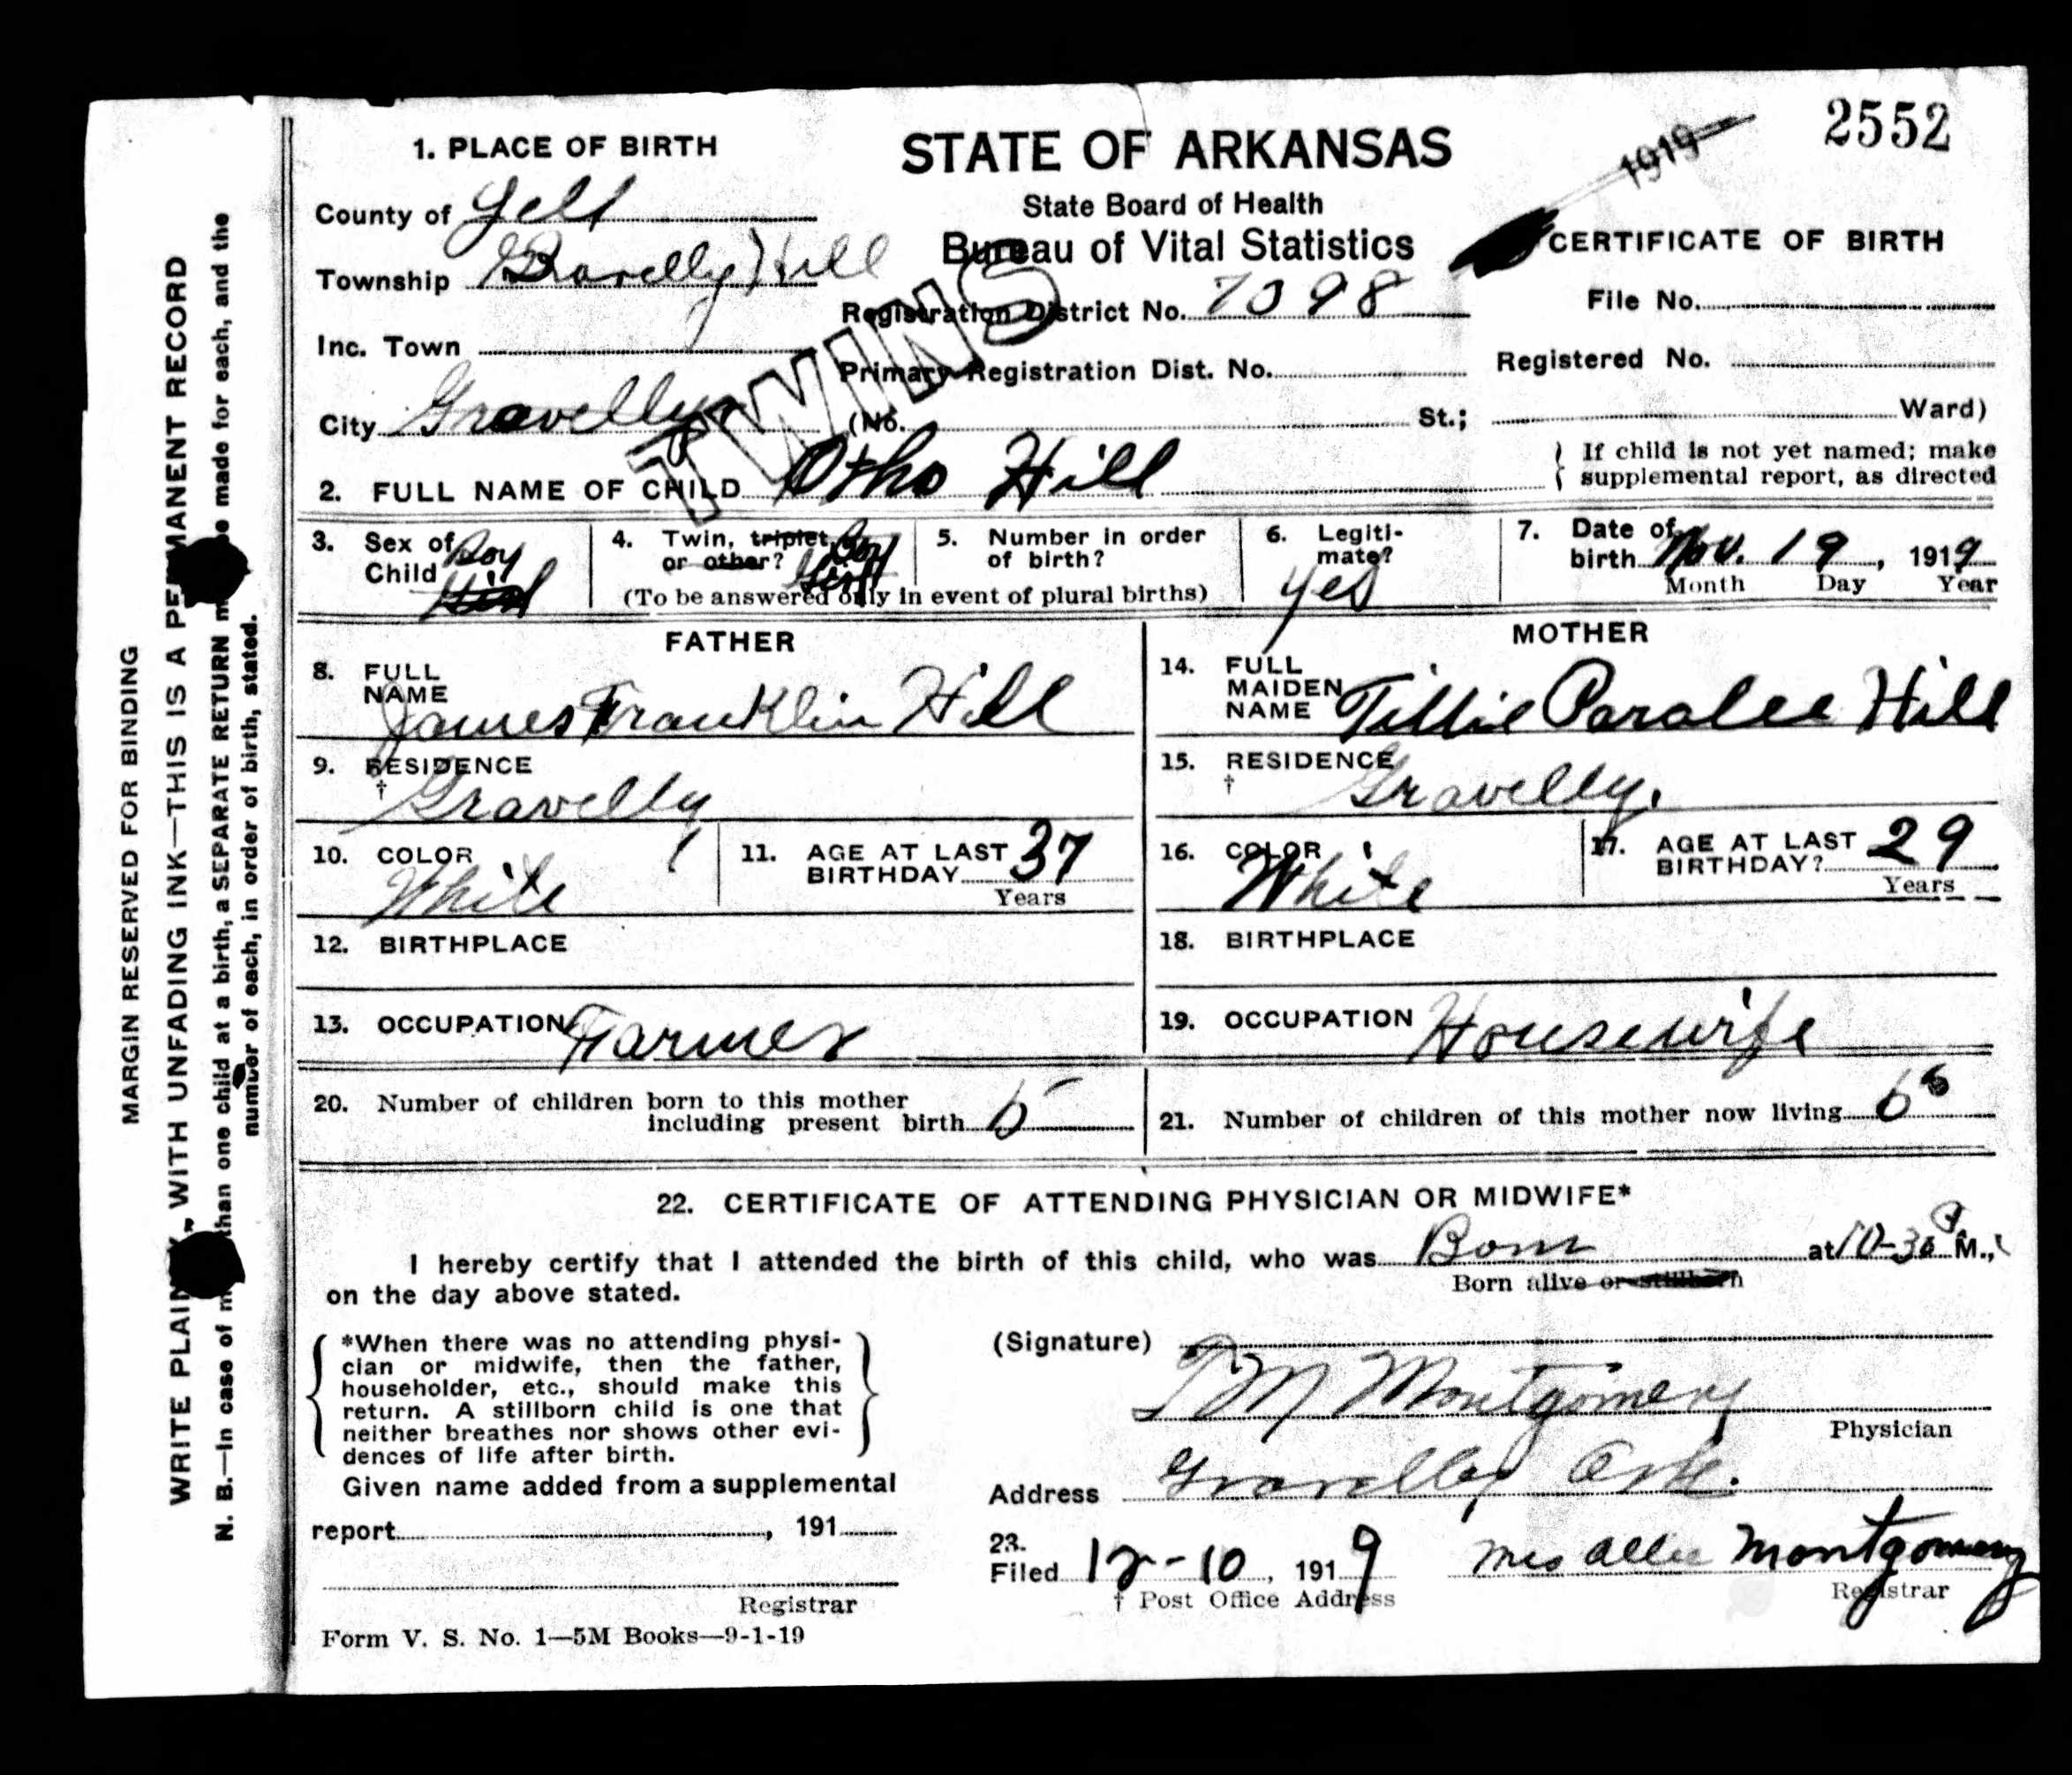 2552
1919
1. PLACE OF BIRTH
STATE OF ARKANSAS
State Board of Health
Bureau of Vital Statistics
CERTIFICATE OF BIRTH
County of Yell
Township Gravelly Hill
Registration District No. 7098
File No.
Inc. Town
Primary Registration Dist. No.
Registered No.
City Gravelly
(No. St.; Ward)
TWINS
2. FULL NAME OF CHILD Otho Hill
If child is not yet named; make
supplemental report, as directed
3. Sex of Child Boy
4. Twin, triplet, or other? Boy
5. Number in order of birth?
(To be answered only in event of plural births)
6. Legiti-mate? yes
7. Date of birth Nov. 19, 1919
Month Day Year
FATHER
8. FULL NAME James Franklin Hill
9. RESIDENCE † Gravelly
10. COLOR White
11. AGE AT LAST BIRTHDAY 37 Years
12. BIRTHPLACE
13. OCCUPATION Farmer
MOTHER
14. FULL MAIDEN NAME Tillie Paralee Hill
15. RESIDENCE † Gravelly.
16. COLOR White
17. AGE AT LAST BIRTHDAY? 29 Years
18. BIRTHPLACE
19. OCCUPATION Housewife
20. Number of children born to this mother
including present birth
21. Number of children of this mother now living
22. CERTIFICATE OF ATTENDING PHYSICIAN OR MIDWIFE*
I hereby certify that I attended the birth of this child, who was Born at 10-30 P. M.,
Born alive or stillborn
on the day above stated.
*When there was no attending physi-
cian or midwife, then the father,
householder, etc., should make this
return. A stillborn child is one that
neither breathes nor shows other evi-
dences of life after birth.
Given name added from a supplemental
report , 191
Registrar
Form V. S. No. 1—5M Books—9-1-19
(Signature)
Montgomery
Physician
Address Gravelly Ark.
23.
Filed 12-10, 1919 Mrs Allie Montgomery
† Post Office Address
Registrar
MARGIN RESERVED FOR BINDING
WRITE PLAINLY, WITH UNFADING INK—THIS IS A PERMANENT RECORD
N. B.—In case of more than one child at a birth, a SEPARATE RETURN must be made for each, and the
number of each, in order of birth, stated.